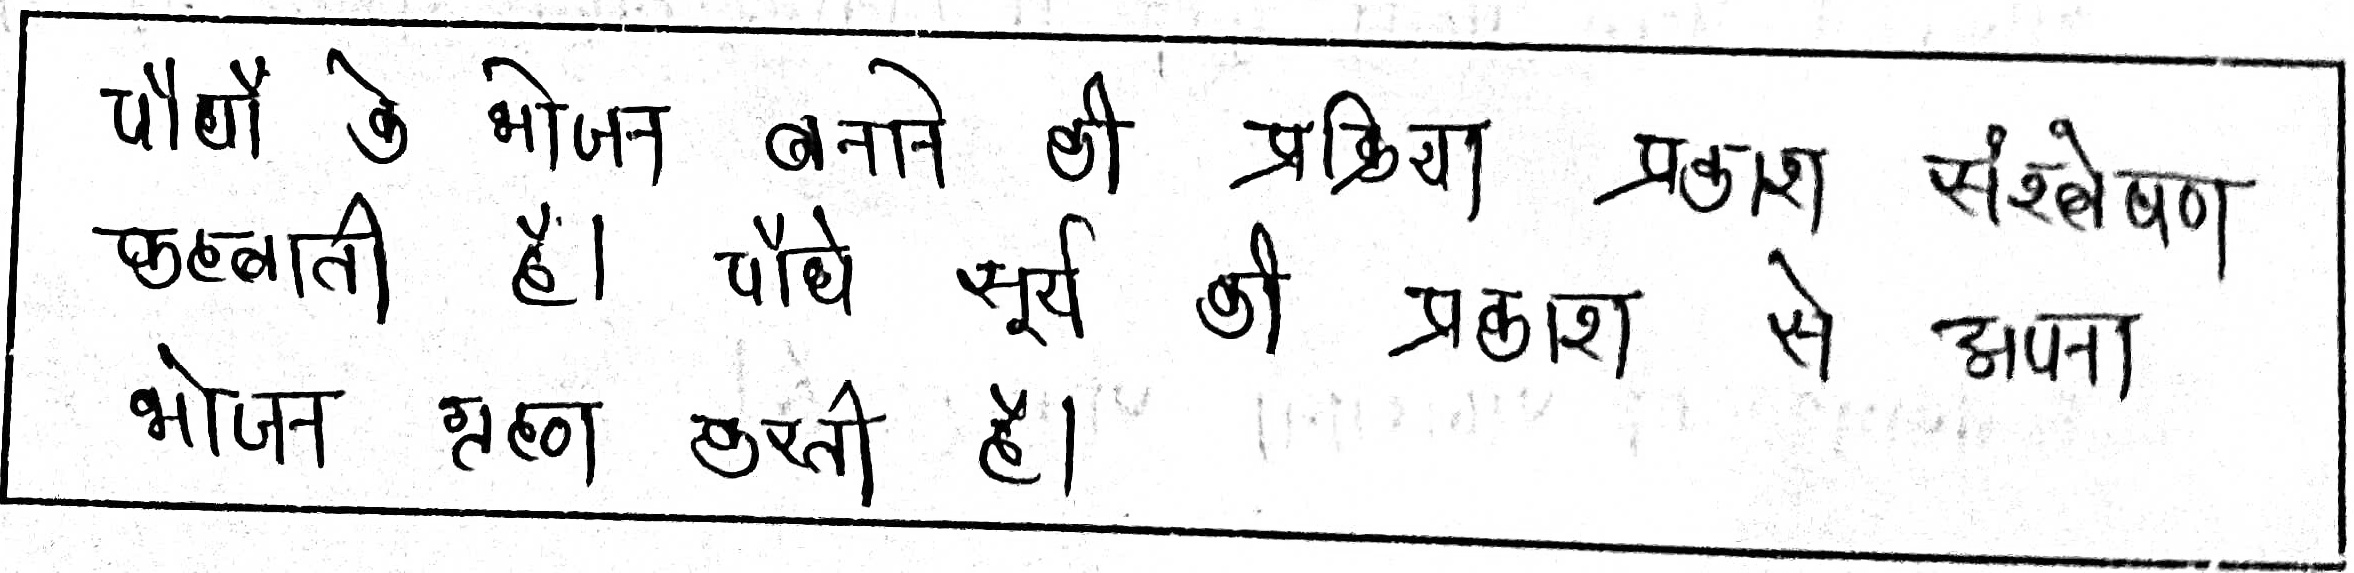 पौधों के भोजन बनाने की प्रक्रिया प्रकाश संश्लेषण
कहलाती हैं। पौधे सूर्य की प्रकाश से अपना
भोजन ग्रहण करती है।